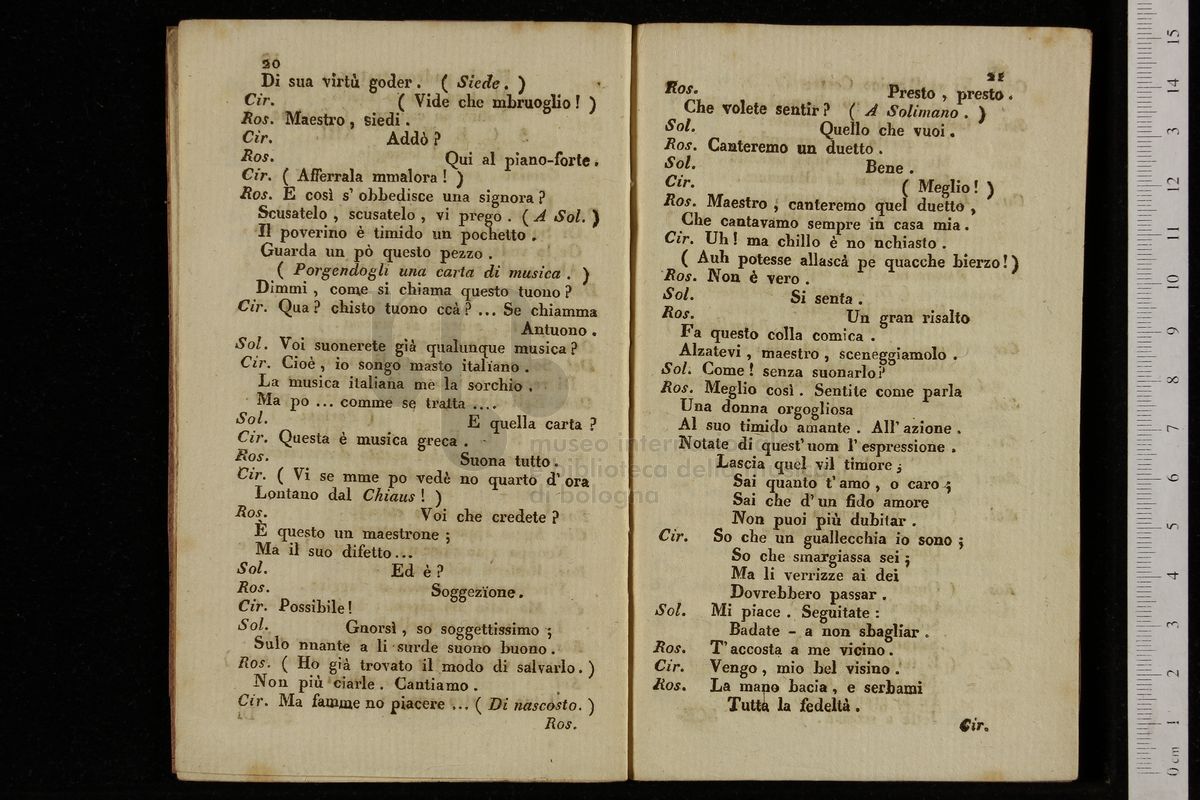 20
Di sua virtù goder. ( Siede. )
Cir. ( Vide che mbruoglio! )
Ros. Maestro, siedi.
Cir. Addò?
Ros. Qui al piano-forte.
Cir. ( Afferrala mmalora! )
Ros. E così s' obbedisce una signora?
Scusatelo, scusatelo, vi prego. ( A Sol. )
Il poverino è timido un pochetto.
Guarda un pò questo pezzo.
( Porgendogli una carta di musica. )
Dimmi, come si chiama questo tuono?
Cir. Qua? chisto tuono ccà? ... Se chiamma
Antuono.
Sol. Voi suonerete già qualunque musica?
Cir. Cioè, io songo masto italiano.
La musica italiana me la sorchio.
Ma po ... comme se tratta ....
Sol. E quella carta?
Cir. Questa è musica greca.
Ros. Suona tutto.
Cir. ( Vi se mme po vedè no quarto d' ora
Lontano dal Chiaus! )
Ros. Voi che credete?
È questo un maestrone;
Ma il suo difetto...
Sol. Ed è?
Ros. Soggezïone.
Cir. Possibile!
Sol. Gnorsì, so soggettissimo;
Sulo nnante a li surde suono buono.
Ros. ( Ho già trovato il modo di salvarlo. )
Non più ciarle. Cantiamo.
Cir. Ma famme no piacere ... ( Di nascosto. )
Ros.
21
Ros. Presto, presto.
Che volete sentir? ( A Solimano. )
Sol. Quello che vuoi.
Ros. Canteremo un duetto.
Sol. Bene.
Cir. ( Meglio! )
Ros. Maestro, canteremo quel duetto,
Che cantavamo sempre in casa mia.
Cir. Uh! ma chillo è no nchiasto.
( Auh potesse allascà pe quacche bierzo! )
Ros. Non è vero.
Sol. Si senta.
Ros. Un gran risalto
Fa questo colla comica.
Alzatevi, maestro, sceneggiamolo.
Sol. Come! senza suonarlo?
Ros. Meglio così. Sentite come parla
Una donna orgogliosa
Al suo timido amante. All' azione.
Notate di quest' uom l' espressione.
Lascia quel vil timore;
Sai quanto t' amo, o caro;
Sai che d' un fido amore
Non puoi più dubitar.
Cir. So che un guallecchia io sono;
So che smargiassa sei;
Ma li verrizze ai dei
Dovrebbero passar.
Sol. Mi piace. Seguitate:
Badate - a non sbagliar.
Ros. T' accosta a me vicino.
Cir. Vengo, mio bel visino.
Ros. La mano bacia, e serbami
Tutta la fedeltà.
Cir.
museo internazionale
e biblioteca della musica
di bologna
0 cm 1 2 3 4 5 6 7 8 9 10 11 12 13 14 15